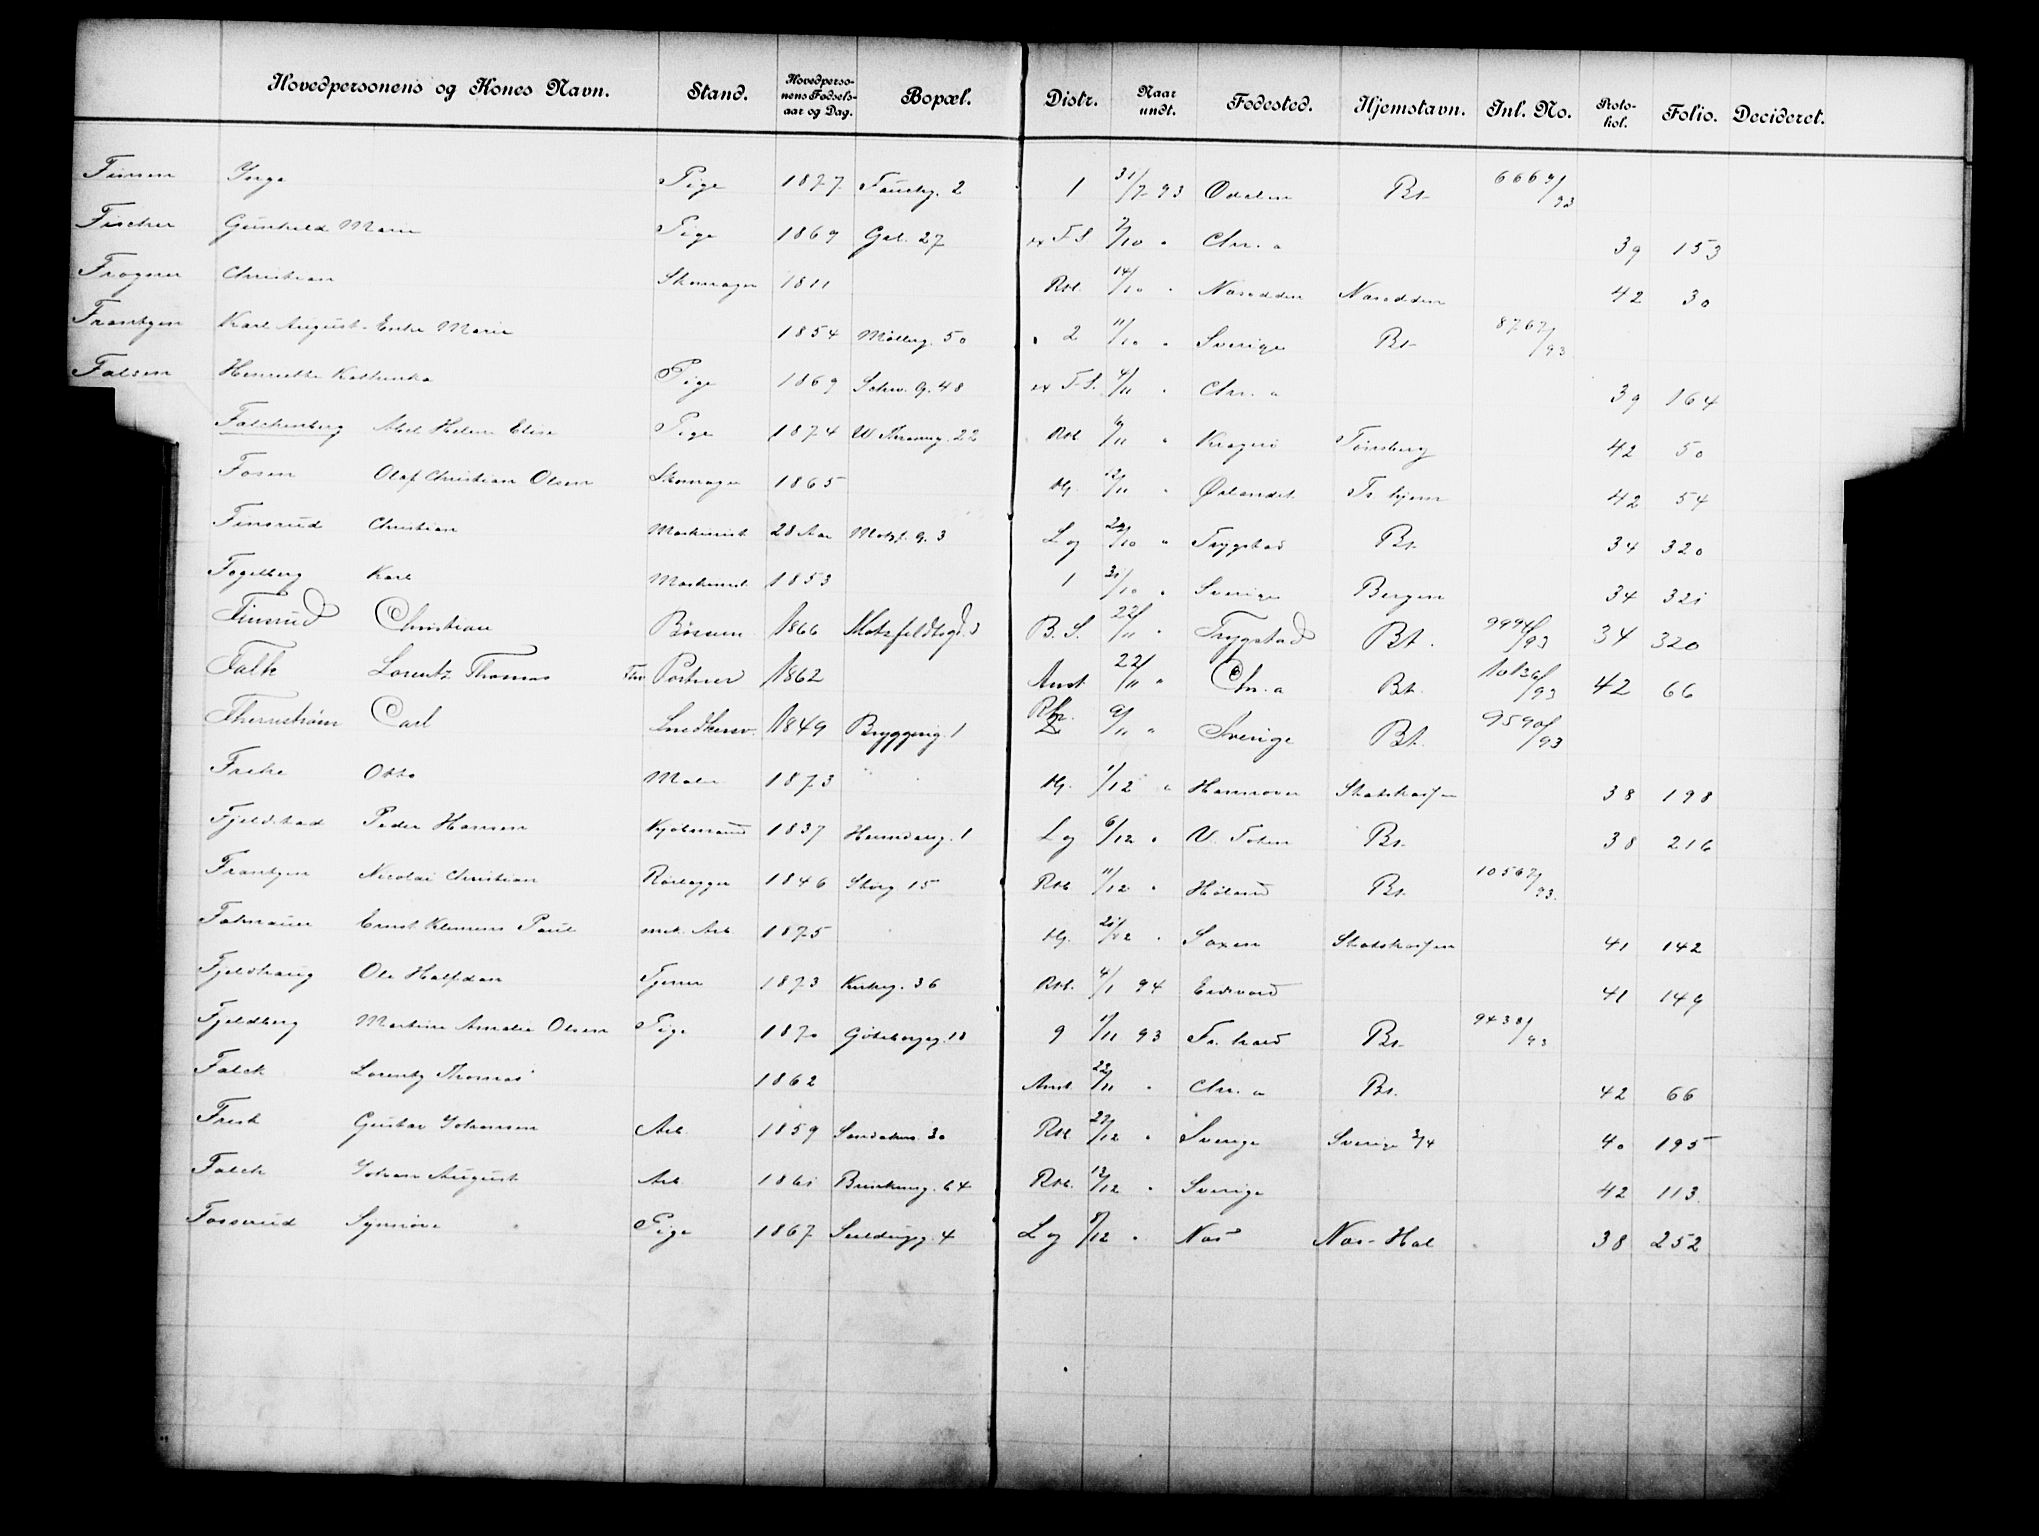 Hovedpersonens og Kones Navn. Stand. Hovedpersonens Fødselsaar og Dag. Bopæl. Distr. Naar undt. Fødested. Hjemstavn. Inl. No. Protokol. Folio. Decideret.
Finsen Inga Pige 1877 2 1 31/7 93 Odalen Bt. 6669/93
Fischer Gunhild Marie Pige 1869 Gel. 27 ex F.S. /10 " Chr. a 39 153
Frogner Christian Skomager 1811 Rtl. 14/10 " Næsodden Næsodden 42 30
Frantzen Karl August Enke Marie 1854 Møllerg. 50 2 11/10 " Sverige Bt. 8767/93
Falsen Henriette Kathinka Pige 1869 Schw. G. 48 ex F.S. 4/11 " Chr. a 39 164
Falchenberg Abel Helene Elise Pige 1874 W Thraneg. 22 Rtl. /11 " Kragerø Tønsberg 42 50
Fosen Olaf Christian Olsen Skomager 1865 Hj. /11 " Ørlandet Tr. hjem 42 54
Finsrud Christian Maskinist 28 Aar Motzf. G. 3 Lg /10 " Trygstad Bt. 34 320
Fogelberg Karl Maskinist 1853 1 31/10 " Sverige Bergen 34 321
Finsrud Christian 1866 Motzfeldtsgd. 3 B.S. 22/11 " Trygstad Bt. 9994/93 34 320
Falk Lorentz Thomas 1862 Anst 22/11 " Chr. a Bt. 10136/93 42 66
Thernstrøm Carl Snedkersv. 1849 Bryggerig. 1 9/11 " Sverige Bt. 9590/93
Freke Otto Maler 1873 Hj. 1/12 " Hannover Statskassen 38 198
Fjeldstad Peder Hansen Kjøbmand 1837 Heimdalsg. 1 Lg 6/12 " V. Toten Bt. 38 216
Frantzen Nicolai Christian Rørlægger 1846 Storg 15 Rtl. 11/12 " Høland Bt. 10567/93.
Ernst Klemens Paul mek. Arb 1875 Hj. 21/12 " Saxen Statskassen 41 142
Fjeldhaug Ole Halfdan Tjener 1873 Kirkeg. 36 Rtl. 4/1 94 Eidsvold 41 149
Fjeldberg Martine Amalie Olsen Pige 1870 Göteborgg. 10 9 /11 93 Fr. hald Bt. 9438/93
Falck Lorentz Thomas 1862 Anst. 22/11 " Chr. a Bt. 42 66
Frisk Gustav Johansen Arb. 1859 Sandakerv. 30 Rtl. 27/12 " Sverige Sverige 3/4 40 195
Falck Johan August Arb 1861 Brinkeng. 64 Rtl. /12 " Sverige 42 113.
Fosserud Synnøve Pige 1867 4 Lg 8/12 " Næs Næs - Hal 38 252